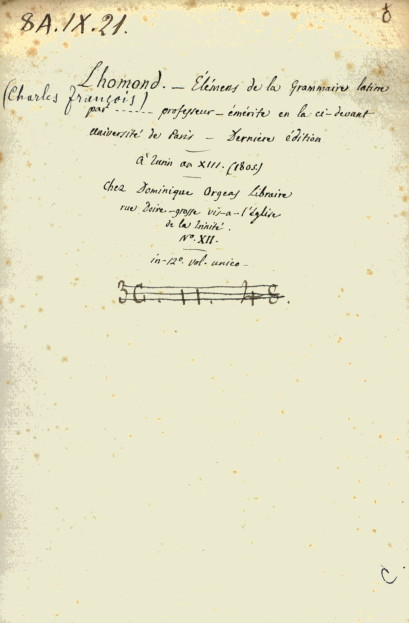 8A.IX.21.
Lhomond. — Élémens de la Grammaire latine
(Charles François)
par ...... professeur-émérite en la ci-devant
Université de Paris — Dernière édition
À Turin an XIII. (1805)
Chez Dominique Orgeas Libraire
rue Doire-grosse vis-a-l'église
de la Trinité.
N.º XII.
in-12º. vol. unico —
36. 11. 48.
C